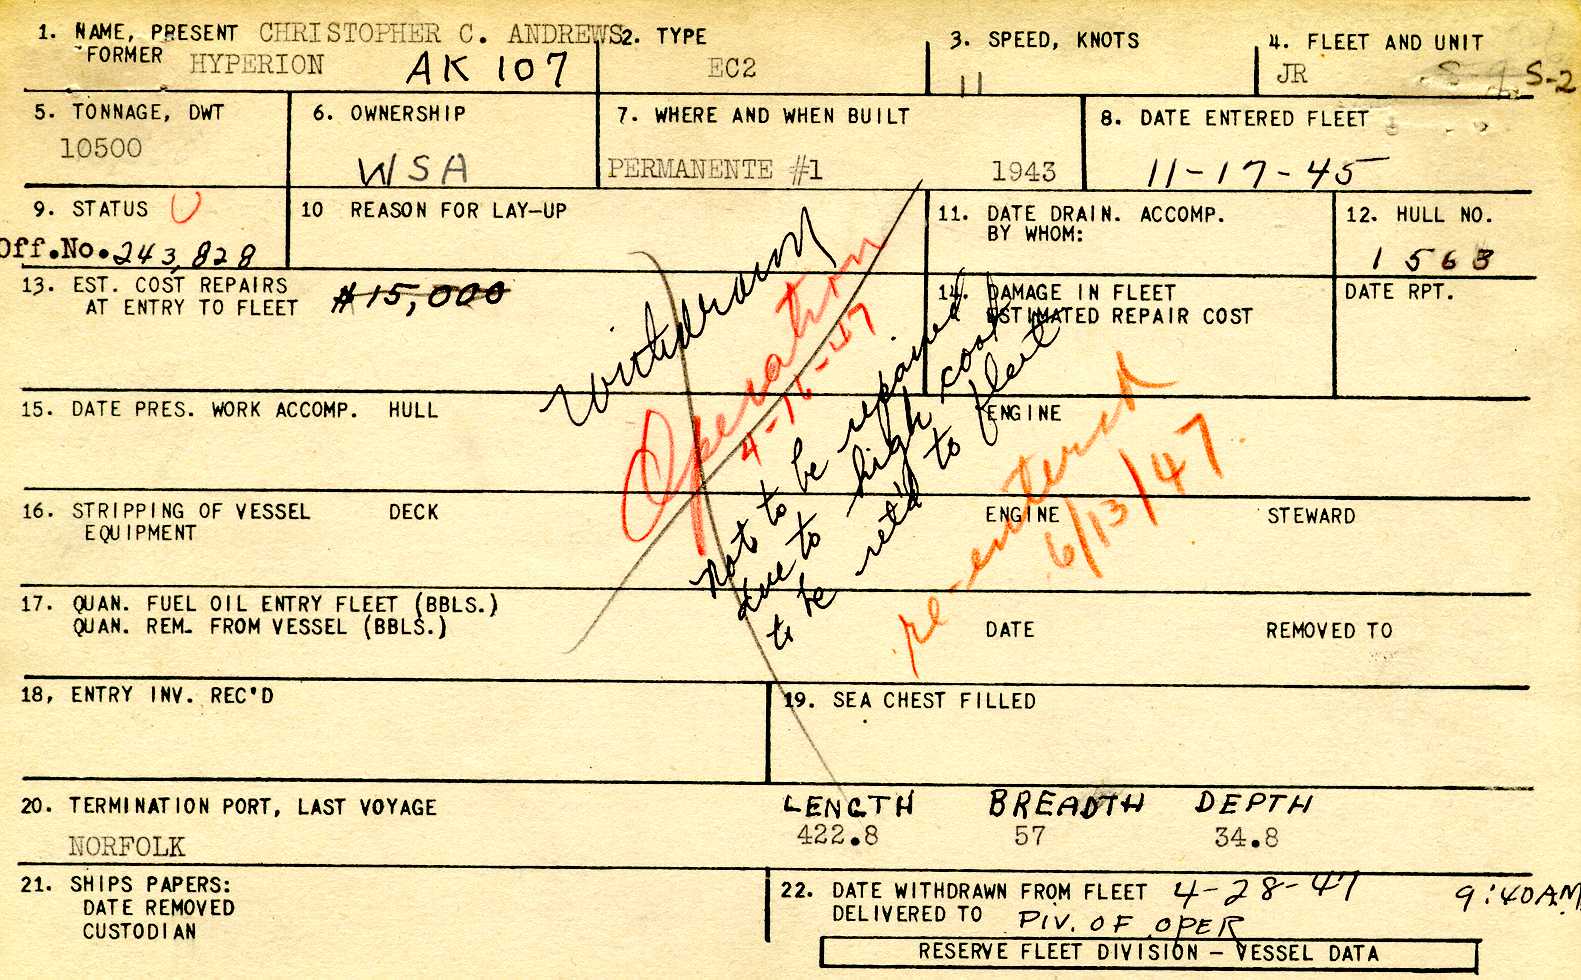 1. NAME, PRESENT CHRISTOPHER C. ANDREWS
FORMER HYPERION AK 107
2. TYPE
EC2
3. SPEED, KNOTS
11
4. FLEET AND UNIT
JR S-2
5. TONNAGE, DWT
10500
6. OWNERSHIP
WSA
7. WHERE AND WHEN BUILT
PERMANENTE #1 1943
8. DATE ENTERED FLEET
11-17-45
9. STATUS U
Off.No. 243,828
10 REASON FOR LAY-UP
11. DATE DRAIN. ACCOMP.
BY WHOM:
12. HULL NO.
1563
13. EST. COST REPAIRS
AT ENTRY TO FLEET $15,000
14. DAMAGE IN FLEET
ESTIMATED REPAIR COST
DATE RPT.
Withdrawn
Operation
4-16-47
not to be repaired
due to high cost
to be ret'd to fleet
re-entered
6/13/47
15. DATE PRES. WORK ACCOMP. HULL ENGINE
16. STRIPPING OF VESSEL DECK ENGINE STEWARD
EQUIPMENT
17. QUAN. FUEL OIL ENTRY FLEET (BBLS.)
QUAN. REM. FROM VESSEL (BBLS.) DATE REMOVED TO
18, ENTRY INV. REC'D
19. SEA CHEST FILLED
20. TERMINATION PORT, LAST VOYAGE
NORFOLK
LENGTH BREADTH DEPTH
422.8 57 34.8
21. SHIPS PAPERS:
DATE REMOVED
CUSTODIAN
22. DATE WITHDRAWN FROM FLEET 4-28-47 9:40AM
DELIVERED TO DIV. OF OPER
RESERVE FLEET DIVISION – VESSEL DATA